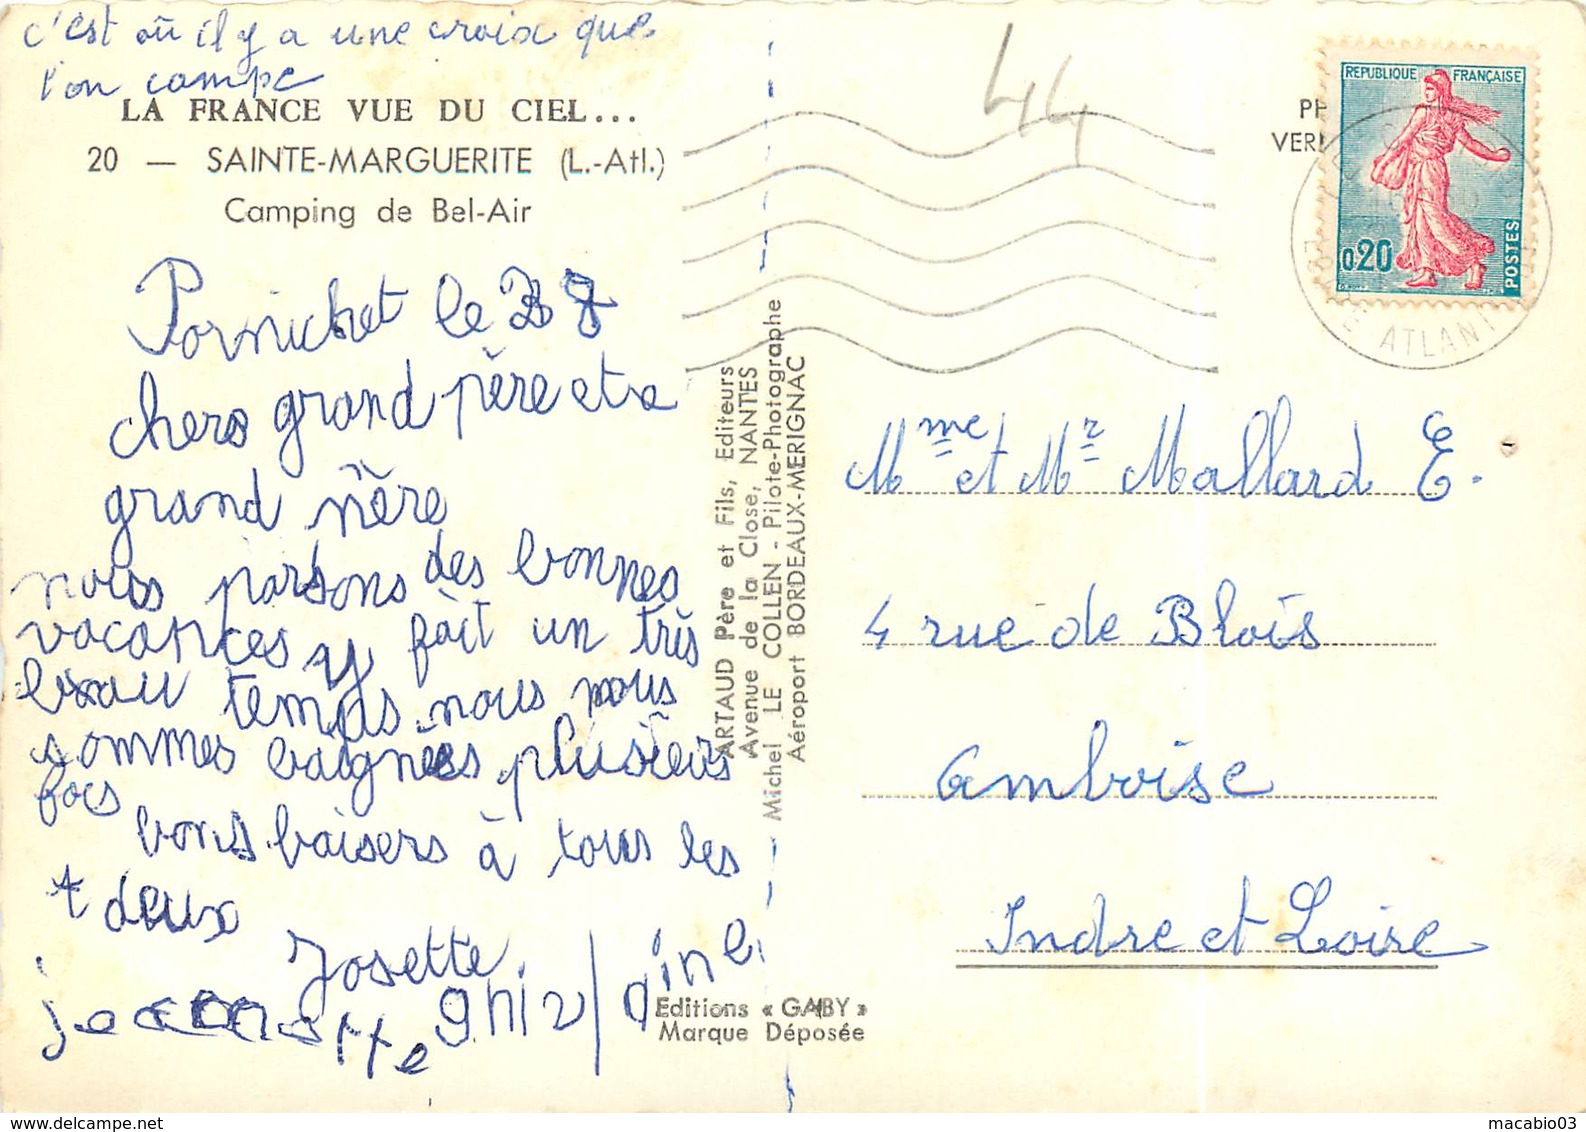 c'est où il y a une croix que
l'on campe
LA FRANCE VUE DU CIEL...
20 — SAINTE-MARGUERITE (L.-Atl.)
Camping de Bel-Air
Pornichet le
chers grand père et
grand mère
nous parsons des bonnes
vacances y fait un très
beau temps nous nous
sommes baignées plusieurs
fois
bons baisers à tous les
deux
Josette
ARTAUD Père et Fils, Editeurs
Avenue de la Close, NANTES
Michel LE COLLEN - Pilote-Photographe
Aéroport BORDEAUX-MERIGNAC
Editions « GABY »
Marque Déposée
44
PH
VERI
REPUBLIQUE FRANÇAISE
0,20
POSTES
ATLANT
Mme et Mr Mallard E.
4 rue de Blois
Amboise
Indre et Loire
www.delcampe.net
macabio03